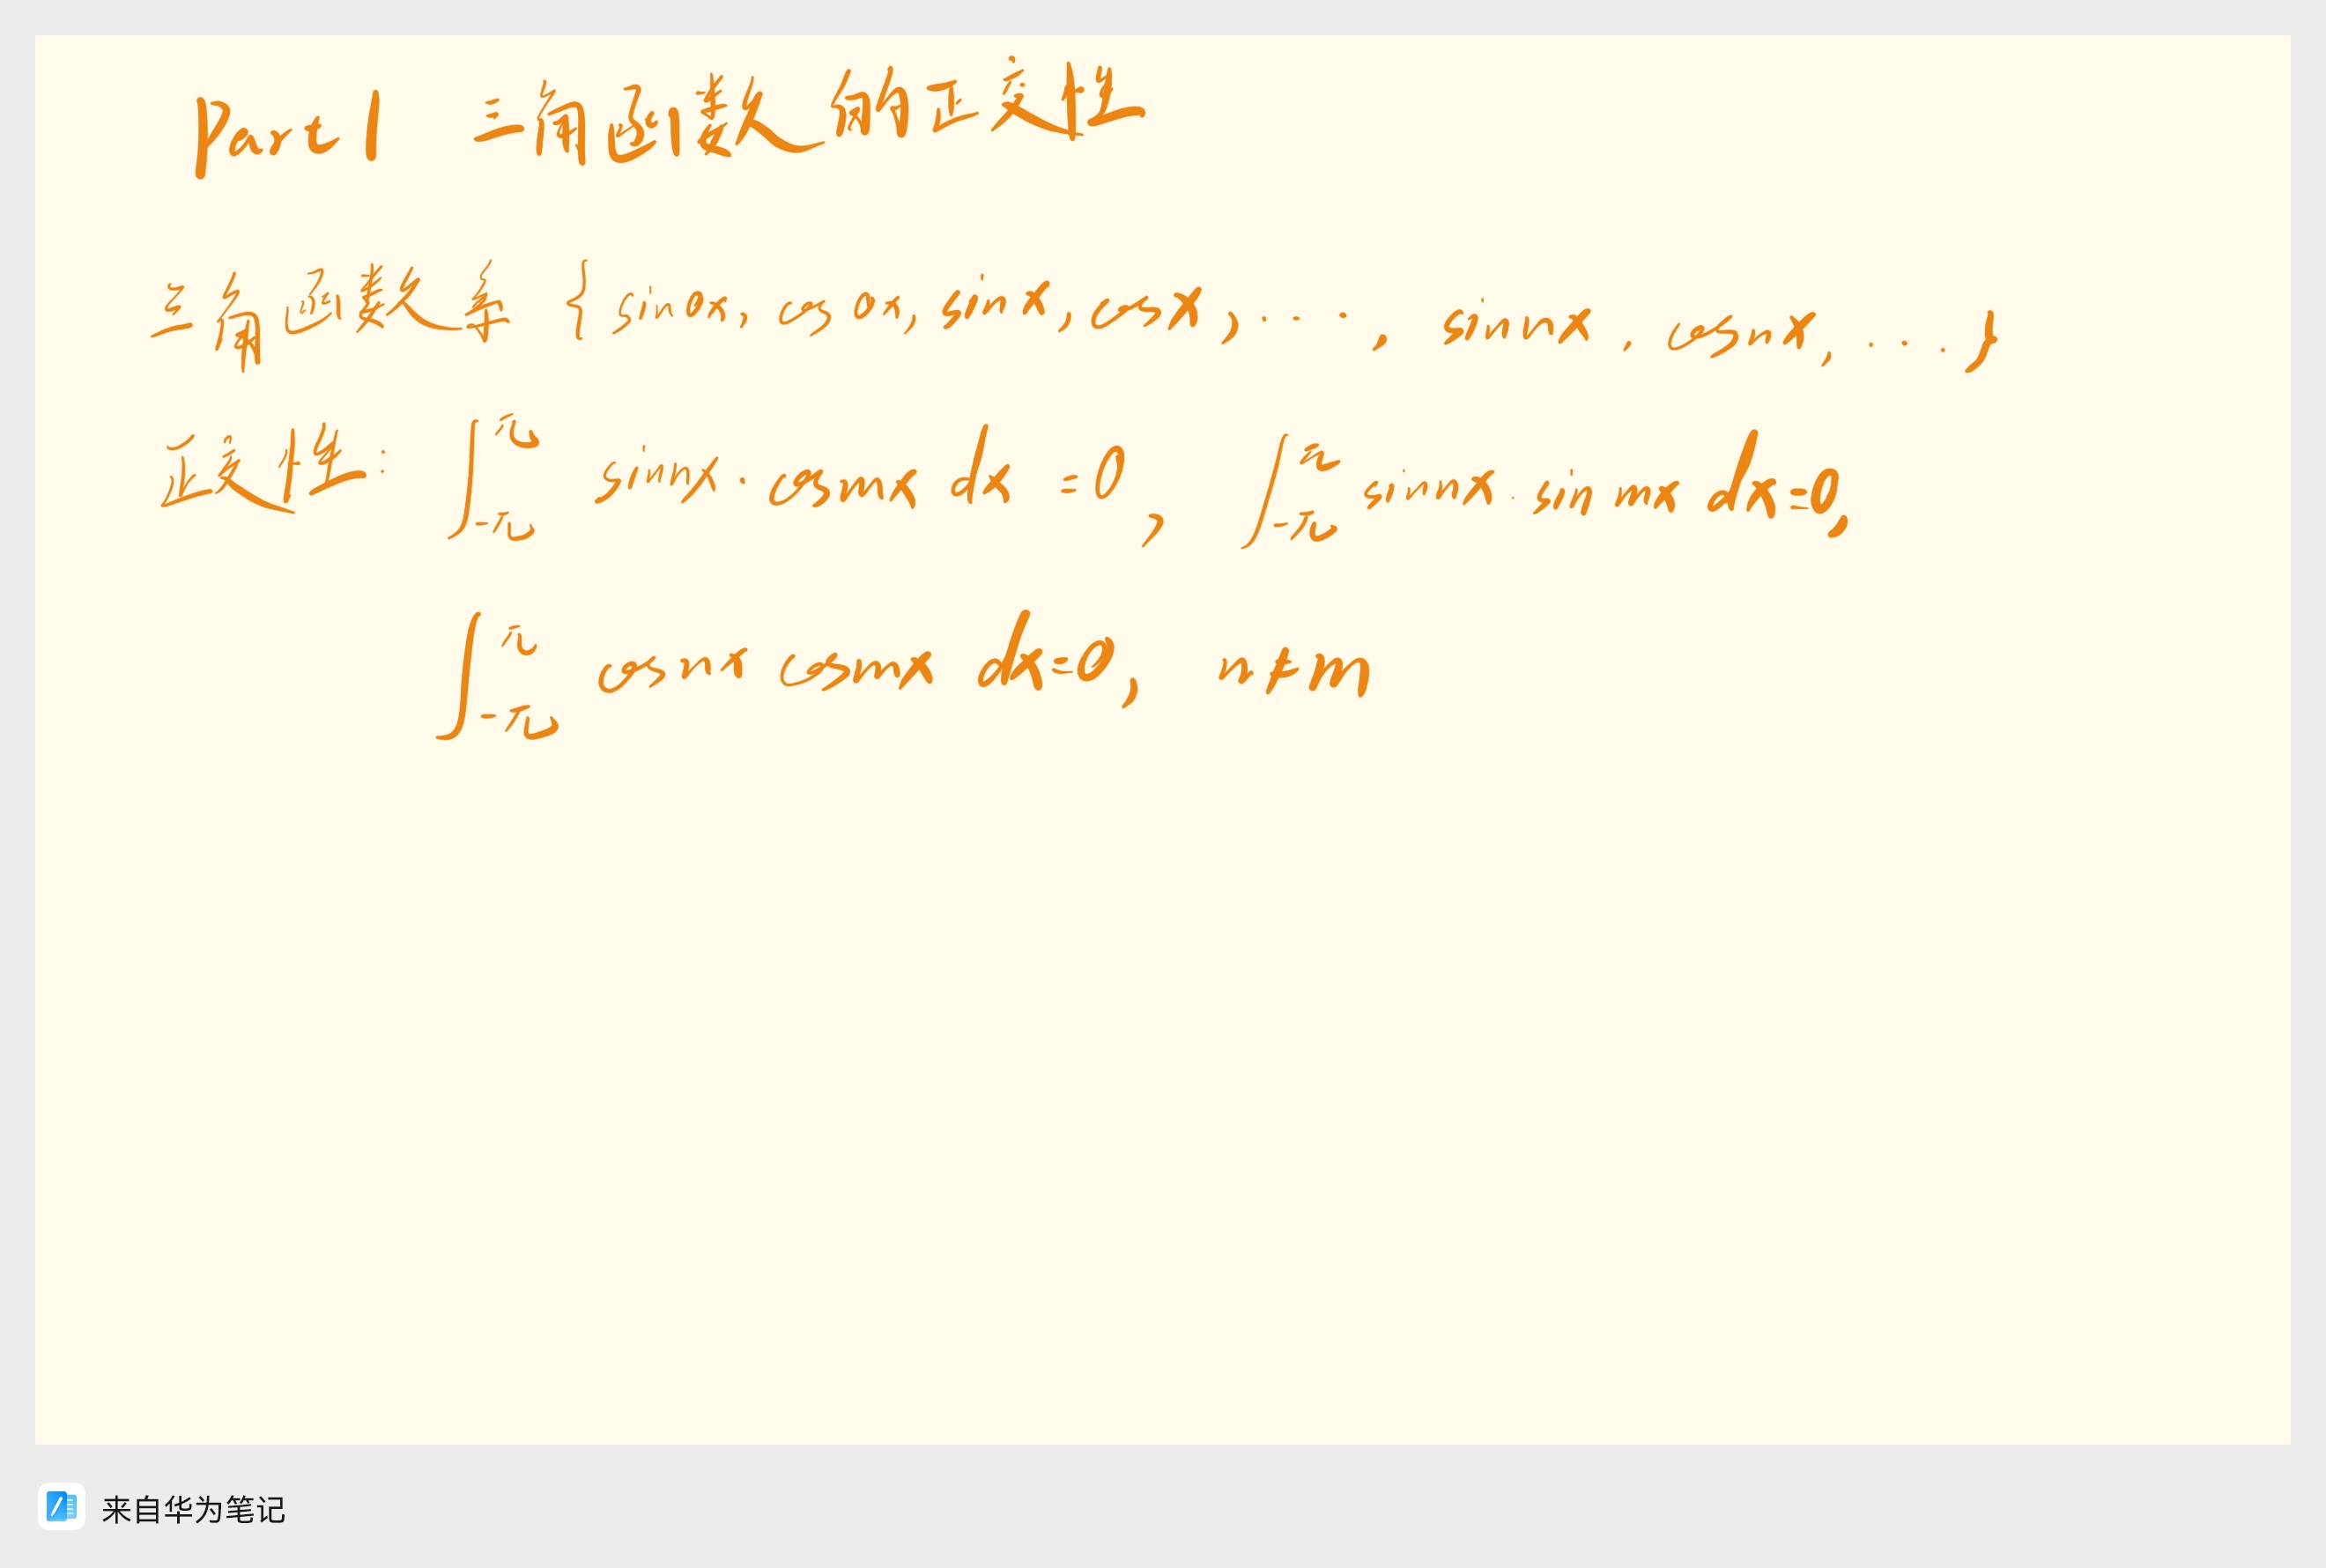 Part 1 三角函数的正交性
三角函数系 { sin0x, cos0x, sinx, cosx, ..., sinnx, cosnx, ...,
正交性: ∫_{-π}^{π} sinnx·cosmx dx =0, ∫_{-π}^{π} sinnx·sinmx dx=0,
∫_{-π}^{π} cosnx cosmx dx=0, n≠m
来自华为笔记